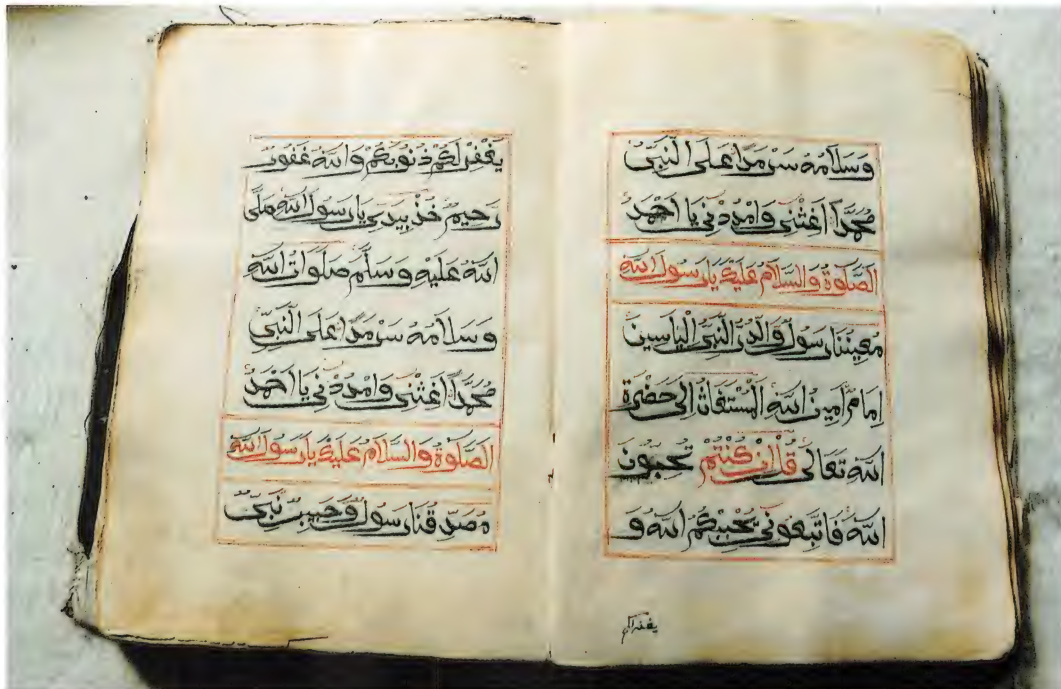 وَسَلَامُهُ سَرْمَدًا عَلَى النَّبِيِّ
مُحَمَّدًا اَغِثْنِي وَامْدُدْنِي يَا اَحْمَدُ
اَلصَّلٰوةُ وَالسَّلَامُ عَلَيْكَ يَا رَسُولَ اللّٰهِ
مُعِينُنَا رَسُولٌ وَالدُّرُّ النَّبِيُّ اِلْيَاسِينَ
اِمَامٌ اَمِينُ اللّٰهِ اَلْمُسْتَغَاثُ اِلٰى حَضْرَةِ
اللّٰهِ تَعَالٰى قُلْ اِنْ كُنْتُمْ تُحِبُّونَ
اللّٰهَ فَاتَّبِعُونِي يُحْبِبْكُمُ اللّٰهُ وَ
يغفرلكم
يَغْفِرْ لَكُمْ ذُنُوبَكُمْ وَاللّٰهُ غَفُورٌ
رَحِيمٌ خُذْ بِيَدِي يَا رَسُولَ اللّٰهِ صَلَّى
اللّٰهُ عَلَيْهِ وَسَلَّمَ صَلَوَاتُ اللّٰهِ
وَسَلَامُهُ سَرْمَدًا عَلَى النَّبِيِّ
مُحَمَّدًا اَغِثْنِي وَامْدُدْنِي يَا اَحْمَدُ
اَلصَّلٰوةُ وَالسَّلَامُ عَلَيْكَ يَا رَسُولَ اللّٰهِ
مُصَدِّقُنَا رَسُولٌ وَحَبِيبٌ نَبِيٌّ